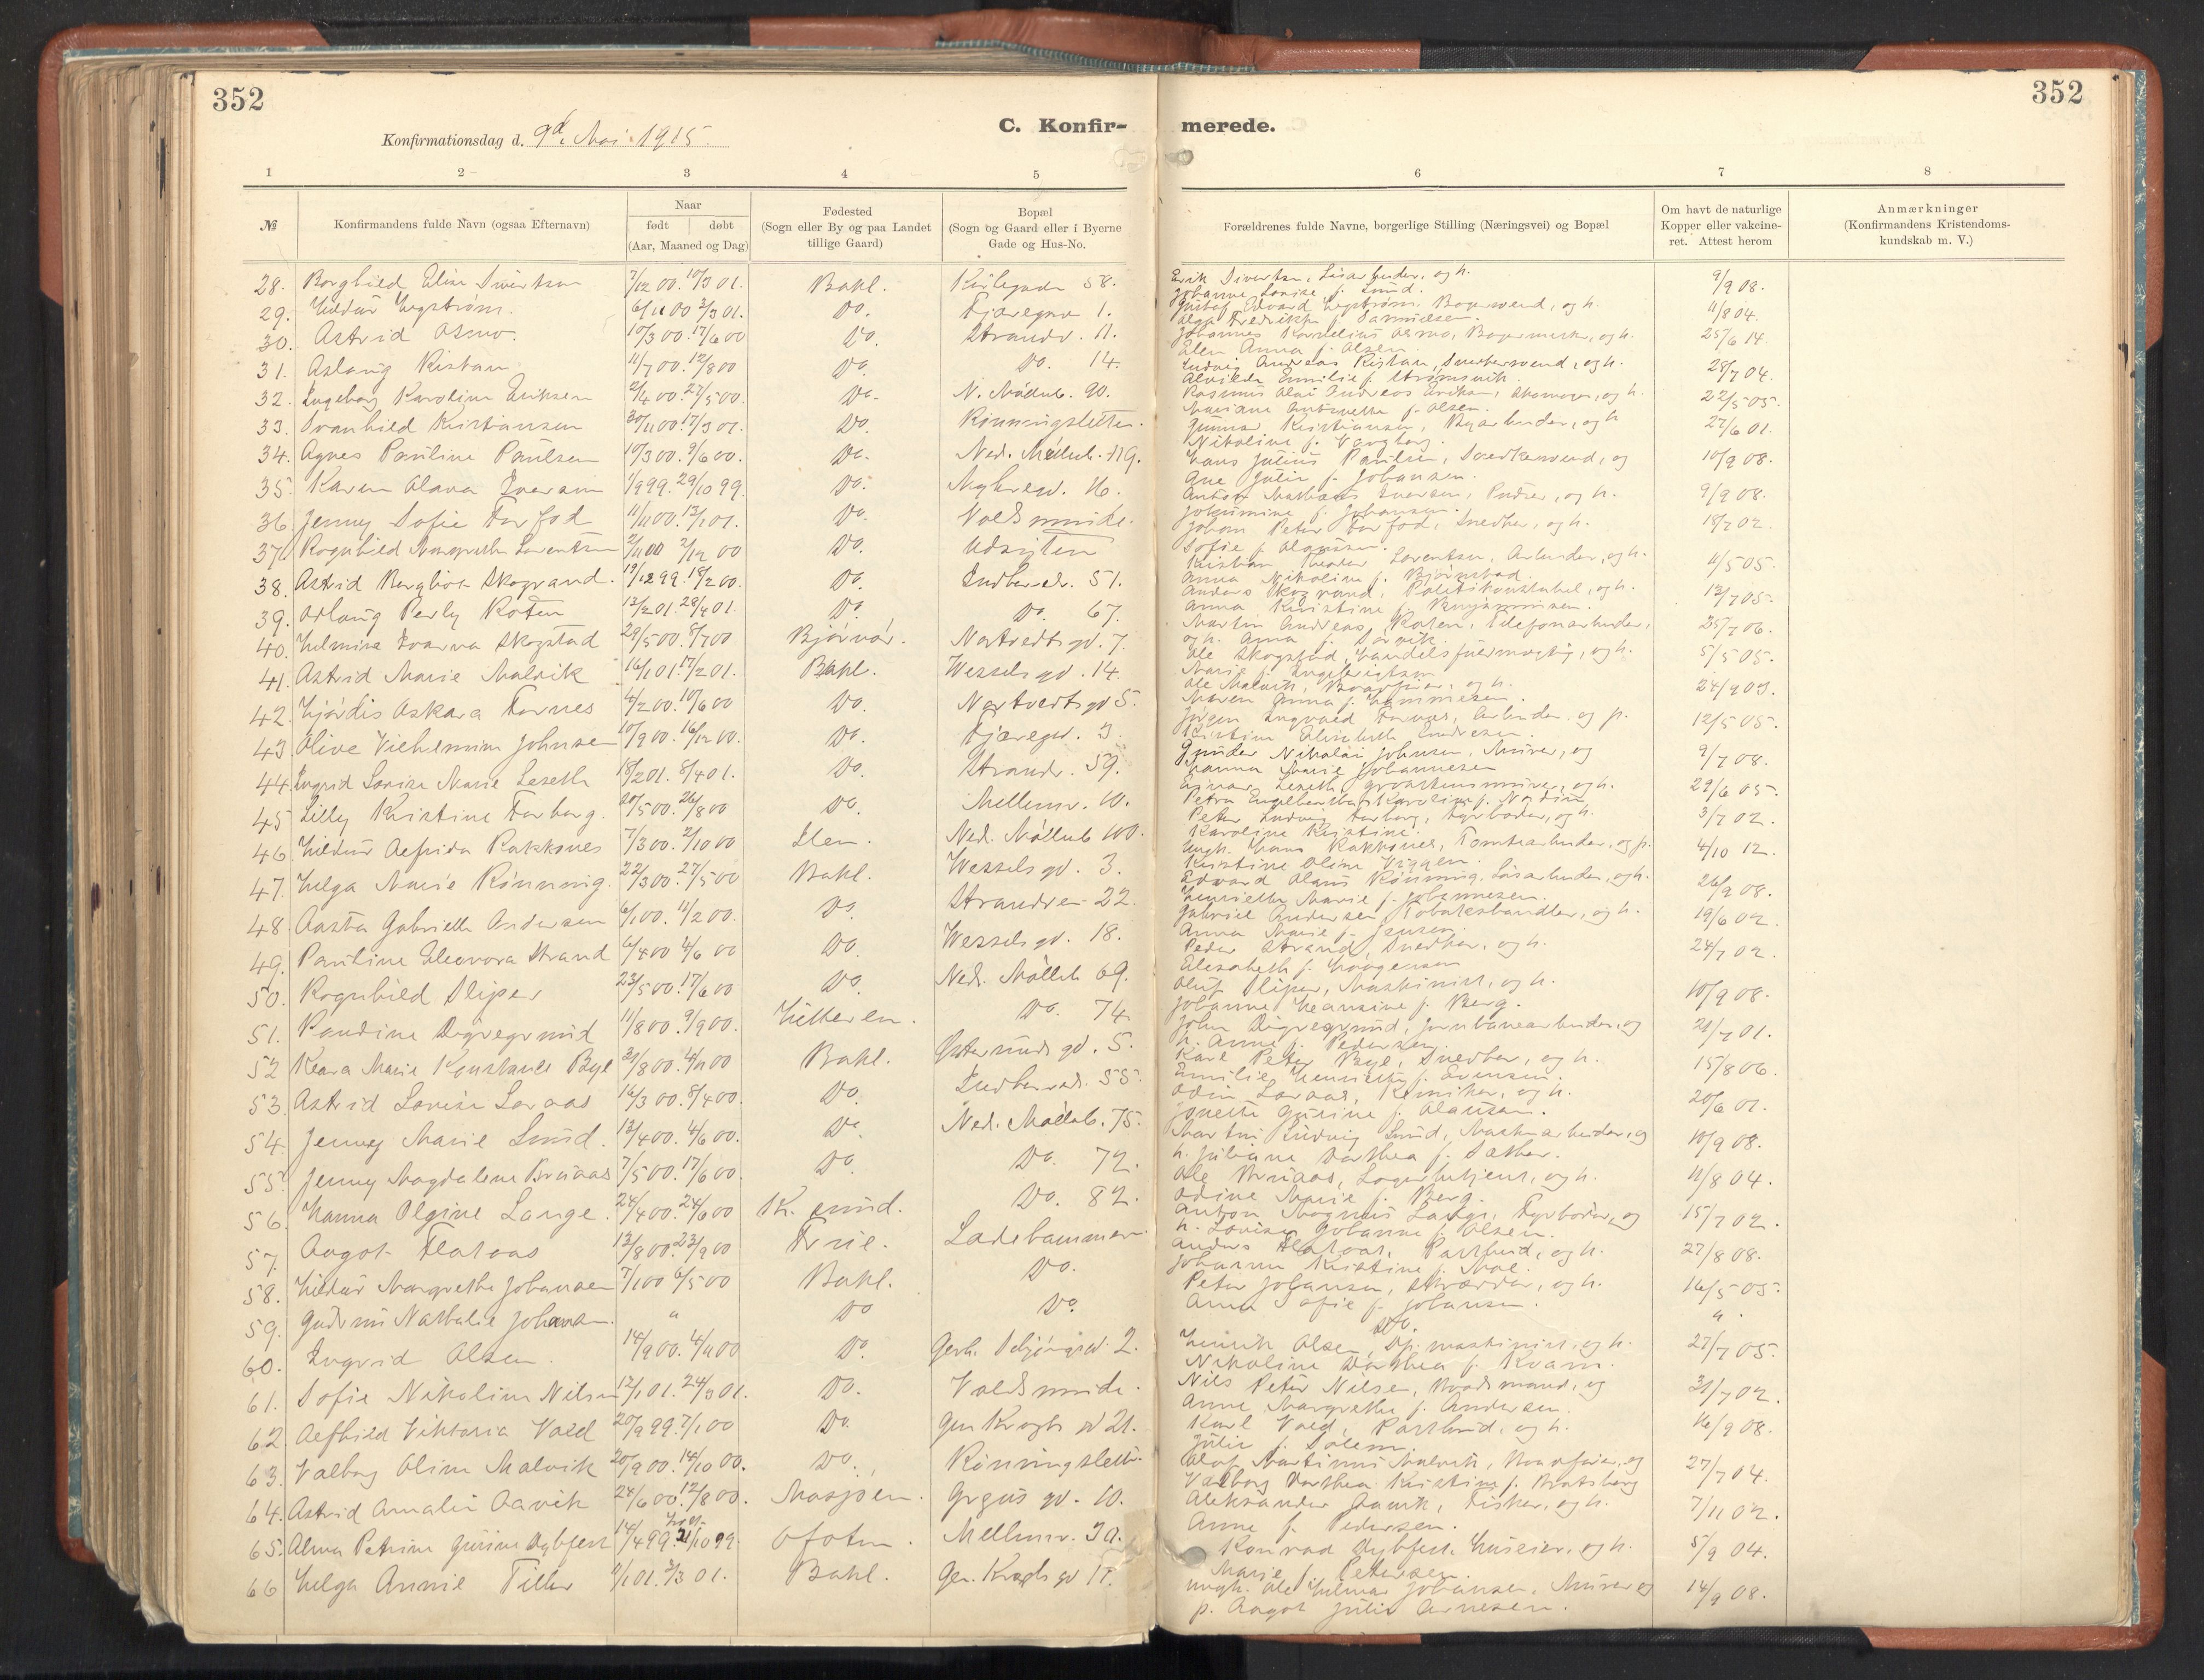 352
352
C. Konfir-
merede.
Konfirmationsdag d. 9d. Mai 1915.
1 2 3 4 5 6 7 8
№
Konfirmandens fulde Navn (ogsaa Efternavn)
Naar
født døbt
(Aar, Maaned og Dag)
Fødested
(Sogn eller By og paa Landet
tillige Gaard)
Bopæl
(Sogn og Gaard eller i Byerne
Gade og Hus-No.
Forældrenes fulde Navne, borgerlige Stilling (Næringsvei) og Bopæl
Om havt de naturlige
Kopper eller vakcine-
ret. Attest herom
Anmærkninger
(Konfirmandens Kristendoms-
kundskab m. V.)
28. Borghild Elise Sivertsen 7/12 00. 10/3 01. Bakl. 58. Erik Sivertsen, Løsarbeider, og h. 9/9 08.
Johanne Lovise f. Lund.
29. Hildur 6/11 00 3/3 01. Do. Fjæregd. 1. Gustaf Edvard og h. 11/8 04.
Fredrikke f. Danielsen.
30. Astrid Osmo. 10/3 00. 17/6 00 Do. Strandv. 11. Johannes Kornelius Osmo, og h. 25/6 14.
Elen Anna f. Olsen
31. Aslaug Kistan 11/7 00. 12/8 00 Do. Do. 14. Ludvig Andreas Kistan, Snedkersvend, og h. 28/7 04.
Alvilde Emilie f. Strømsvik.
32. Ingeborg Karoline Eriksen 2/4 00. 27/5 00. Do. N. Møllenb. 90. Rasmus Olai Andreas Eriksen, og h. 22/5 05.
Mariane Antonette f. Olsen.
33. Svanhild Kristiansen 30/11 00. 17/3 01. Do. Rønningsletten. Gunnar Kristiansen, og h 27/6 01.
Nikoline f. Vangberg.
34. Agnes Pauline Paulsen 10/3 00. 9/6 00. Do. Ned. Møllenb. 119. Hans Julius Paulsen, og 10/9 08.
Ane Julie f. Johansen.
35. Karen Olava Iversen 1/9 99. 29/10 99. Do. Myhregd. 16. Anton Mathias Iversen, Pudser, og h. 9/9 08.
Jokumine f. Johansen.
36. Jenny Sofie Forfod 11/11 00. 13/1 01. Do. Voldsminde. Johan Peter Forfod, Snedker, og h. 18/7 02.
Sofie f. Olaussen.
37. Ragnhild Margrethe Lorentsen 2/11 00 2/12 00 Do. Udsigten Kristian Teodor Lorentsen, Arbeider, og h. 11/5 05.
Anna Nikoline f. Bjørnstad.
38. Astrid Bergliot Skogrand. 19/12 99. 18/2 00. Do. Indherredv. 51. Anders Skogrand, Politikonstabel, og h. 12/7 05.
Anna Kristine f. Benjaminsen.
39. Aslaug Perly Roten 13/2 01. 28/4 01. Do. Do. 67. Martin Andreas Roten, Telefonarbeider, 25/7 06.
og h. Anna f. Sørvik.
40. Hilmine Ivarna Skogstad 29/5 00. 8/7 00 Bjørnør. Nortvedts gd. 7. Ole Skogstad, Handelsfuldmægtig, og h. 5/5 05.
Marie f. Ingebrigtsen
41. Astrid Marie Malvik 16/1 01. 17/2 01. Bakl. Wessels gd. 14. Ole Malvik, og h. 24/9 09.
Maren Anna f. Hemmingsen.
42. Hjørdis Oskara Fornes 4/2 00. 10/6 00 Do. Nortvedts gd 5. Jørgen Ingvald Fornes, Arbeider, og h. 12/5 05.
Kristine Elisabeth Endresen.
43. Olive Vilhelmine Johnsen 10/9 00. 16/12 00. Do. Fjæregd. 3. Gunder Nikolai Johnsen, Murer, og 9/7 08.
Hanna Marie Johannesen
44. Ingrid Lovise Marie Leseth 18/2 01. 8/4 01. Do. Strandv. 59. Einar Leseth, og h. 29/6 05.
Petra Karoline f. Nordin
45. Lilly Kristine Forberg. 20/5 00. 26/8 00 Do. Mellemv. 10. Peter Ludvig Forberg, Fyrbøder, og h. 3/7 02.
Karoline Kristine.
46. Hildur Alfrida Rakknes 7/3 00. 2/10 00 Ilen. Ned. Møllenb. 100. Ungk. Hans Rakknes, Tomtearbeider, og p. 4/10 12.
Kristine Oline Viggen.
47. Helga Marie Rønning. 22/3 00. 27/5 00 Bakl. Wessels gd. 3. Edvard Olaus Rønning, Løsarbeider, og h. 26/9 08.
Henriette Marie f. Johannesen.
48. Aasta Gabrielle Andersen 6/1 00. 11/2 00. Do. Strandvei 22. Gabriel Andersen, Tobakshandler, og h. 19/6 02.
Anna Marie f. Jensen.
49. Pauline Eleonora Strand 6/4 00 4/6 00 Do. Wessels gd. 18. Peder Strand, Snedker, og h. 24/7 02.
Elisabeth f. Haagensen
50. Ragnhild Sliper 23/5 00. 17/6 00 Do. Ned. Møllenb 69. Oluf Sliper, Maskinist, og h. 10/9 08.
Johanne Hansine f. Berg.
51. Pauline Digregrund 11/8 00. 9/9 00. Hitteren. Do. 74. John Digregrund, Jernbanearbeider, og 21/7 01.
h. Anne f. Pedersen.
52 Klara Marie Konstanse Bye 31/8 00. 4/11 00 Bakl. Østersunds gd. 5. Karl Peter Bye, Snedker, og h. 15/8 06.
Emilie Henriette f. Svensen.
53. Astrid Lovise Loraas 16/3 00. 8/4 00. Do. Indherredv. 55. Odin Loraas, Kemiker, og h. 20/6 01.
Jonette Gurine f. Olaussen.
54. Jenny Marie Lund. 13/4 00. 4/6 00. Do. Ned. Møllenb. 75. Martin Ludvig Lund, Maskinarbeider, og 10/9 08.
h. Juliane Dorthea f. Sæther.
55. Jenny Magdalene Bruaas 7/5 00. 17/6 00. Do. Do. 72. Ole Bruaas, Lagerbetjent, og h. 11/8 04.
Odine Marie f. Berg.
56. Hanna Olgine Lange. 24/4 00. 24/6 00 K. sund. Do. 82. Anton Magnus Lange, Fyrbøder, og 15/7 02.
h. Lovise Johanne f. Olsen.
57. Aagot Flataas 13/8 00. 23/9 00 Frue. Ladehammer Anders Flataas, Postbud, og h. 27/8 08.
Johanna Kristine f. Moe.
58. Hildur Margrethe Johansen 7/1 00 6/5 00 Bakl. Do. Peter Johansen, Skrædder, og h. 16/5 05.
Anna Sofie f. Johansen.
59. Gudrun Nathalie Johansen. " Do Do. Do. "
60. Ingrid Olsen. 14/9 00. 4/11 00 Do. Gerh. Schjøningsgd. 2. Henrik Olsen, maskinist, og h. 27/7 05.
Nikoline Dorthea f. Kvam.
61. Sofie Nikoline Nilsen 12/1 01. 24/3 01. Do. Voldsminde. Nils Peter Nilsen, og 31/7 02.
Anne Margrethe f. Andersen.
62. Alfhild Viktoria Vold 20/9 99. 7/1 00 Do. Gen Kroghs gd 21. Karl Vold, Postbud, og h. 16/9 08.
Julie f. Solem.
63. Valborg Oline Malvik 20/9 00. 14/10 00. Do. Rønningslette. Olaf Martinus Malvik, og 27/7 04.
Valborg Dorthea Kristine f. Bratsberg
64. Astrid Amalie Aavik 24/6 00. 12/8 00. Mosjøen. Grgus gd. 10. Aleksander Aavik, Fisker, og h. 7/11 02.
Anne f. Pedersen.
65. Alma Petrine Gurine Dybfest 14/4 99. 21/10 99. Ofoten. Mellemv. 39. Konrad Dybfest, Huseier, og h. 5/9 04.
Marie f. Petersen.
66 Helga Annie Tiller 2/1 01. 3/3 01. Bakl. Gen. Kroghs gd 17. Ungk. Ole Hilmar Johansen, Murer og 14/9 08.
p. Aagot Julie Arnesen.